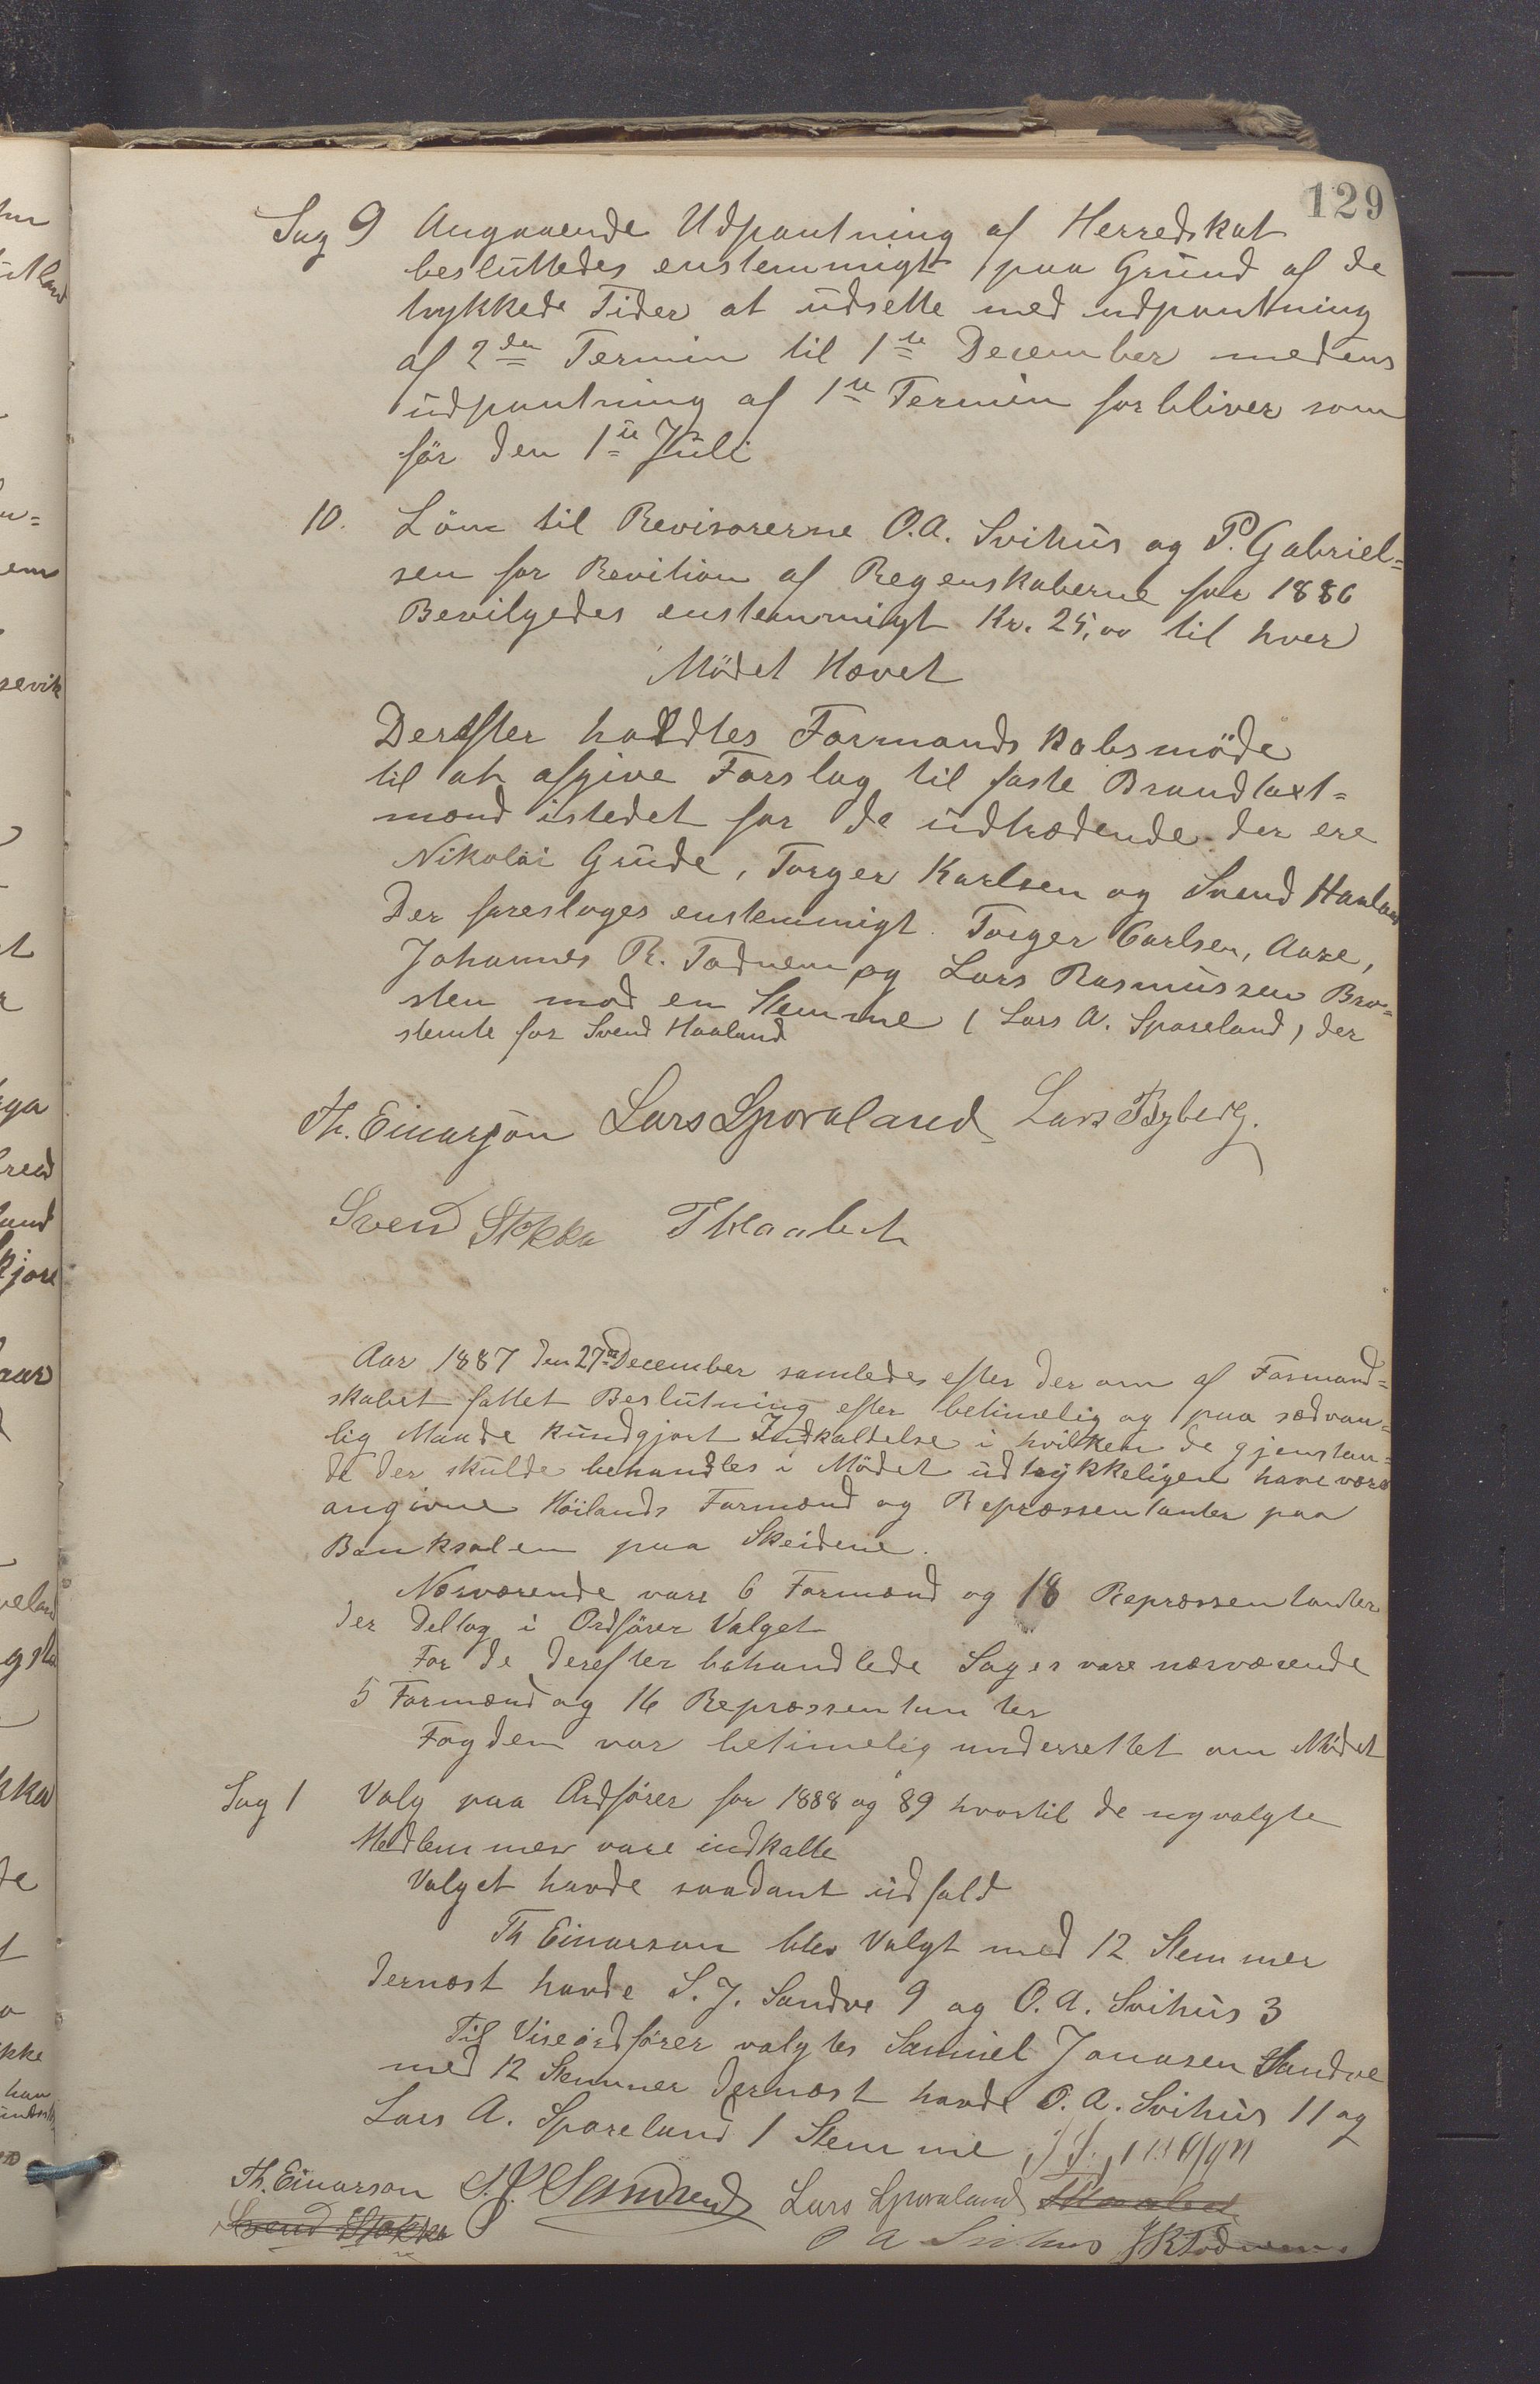 129
Sag 9 Angaaende Udpantning af Herredskat
besluttedes enstemmigt paa Grund af de
trykkede Tider at udsette med udpantning
af 2den Termin til 1te December medens
udpantning af 1te Termin forbliver som
för den 1te Juli
10. Lön til Revisorerne O.A. Svihus og P. Gabriel=
sen for Revition af Regenskaberne for 1886
Bevilgedes enstemmigt Kr. 25,00 til hver
Mödet Hævet
Derefter holdtes Formandskabsmöde
til at afgive Forslag til faste Brandtaxt=
mænd istedet for de udtrædende der ere
Nikolai Grude, Torger Karlsen og Svend Haaland
Der foresloges enstemmigt Torger Carlsen, Aase,
Johannes R. Todnem og Lars Rasmussen Bro=
sten mod en Stemme (Lars A. Sporeland) der
stemte for Svend Haaland
Th. Einarson Lars Sporaland Lars Byberg.
Svend Stokka T Haabeth
Aar 1887 den 27de December samledes efter derom af Formand=
skabet fattet Beslutning efter betimelig og paa sædvan=
lig Maade kundgjort Indkaldelse i hvilken de gjenstan=
de der skulde behandles i Mödet udtrykkeligen have være
angivne Höilands Formænd og Repræssentanter paa
Banksalen paa Skeidene.
Nærværende vare 6 Formænd og 18 Repræssentanter
der deltog i Ordförer Valget
For de derefter behandlede Sager vare nærværende
5 Formænd og 16 Repræssentanter
Fogden var betimelig underrettet om Mödet
Sag 1 Valg paa Ordförer for 1888 og 89 hvortil de nyvalgte
Medlemmer vare indkalte
Valget havde saadant udfald
Th Einarson blev Valgt med 12 Stemmer
dernæst havde S. J. Sandve 9 og O. A. Svihus 3
Til Viseordförer valgtes Samuel Jonasen Sandve
med 12 Stemmer dernæst havde O. A. Svihus 11 og
Lars A. Sporeland 1 Stemme
Th. Einarson S. J. Sandve Lars Sporaland
Svend Stokka O A Svihus J R Todnem